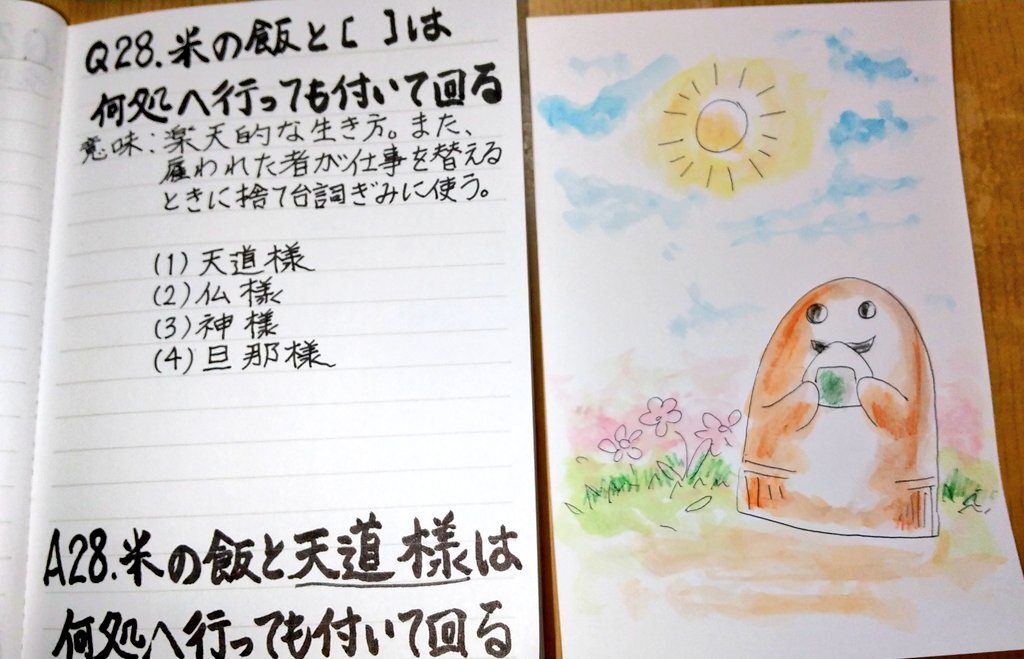 Q28.米の飯と[ ]は
何処へ行っても付いて回る
意味：楽天的な生き方。また、
雇われた者が仕事を替える
ときに捨て台詞ぎみに使う。
(1)天道様
(2)仏様
(3)神様
(4)旦那様
A28.米の飯と天道様は
何処へ行っても付いて回る